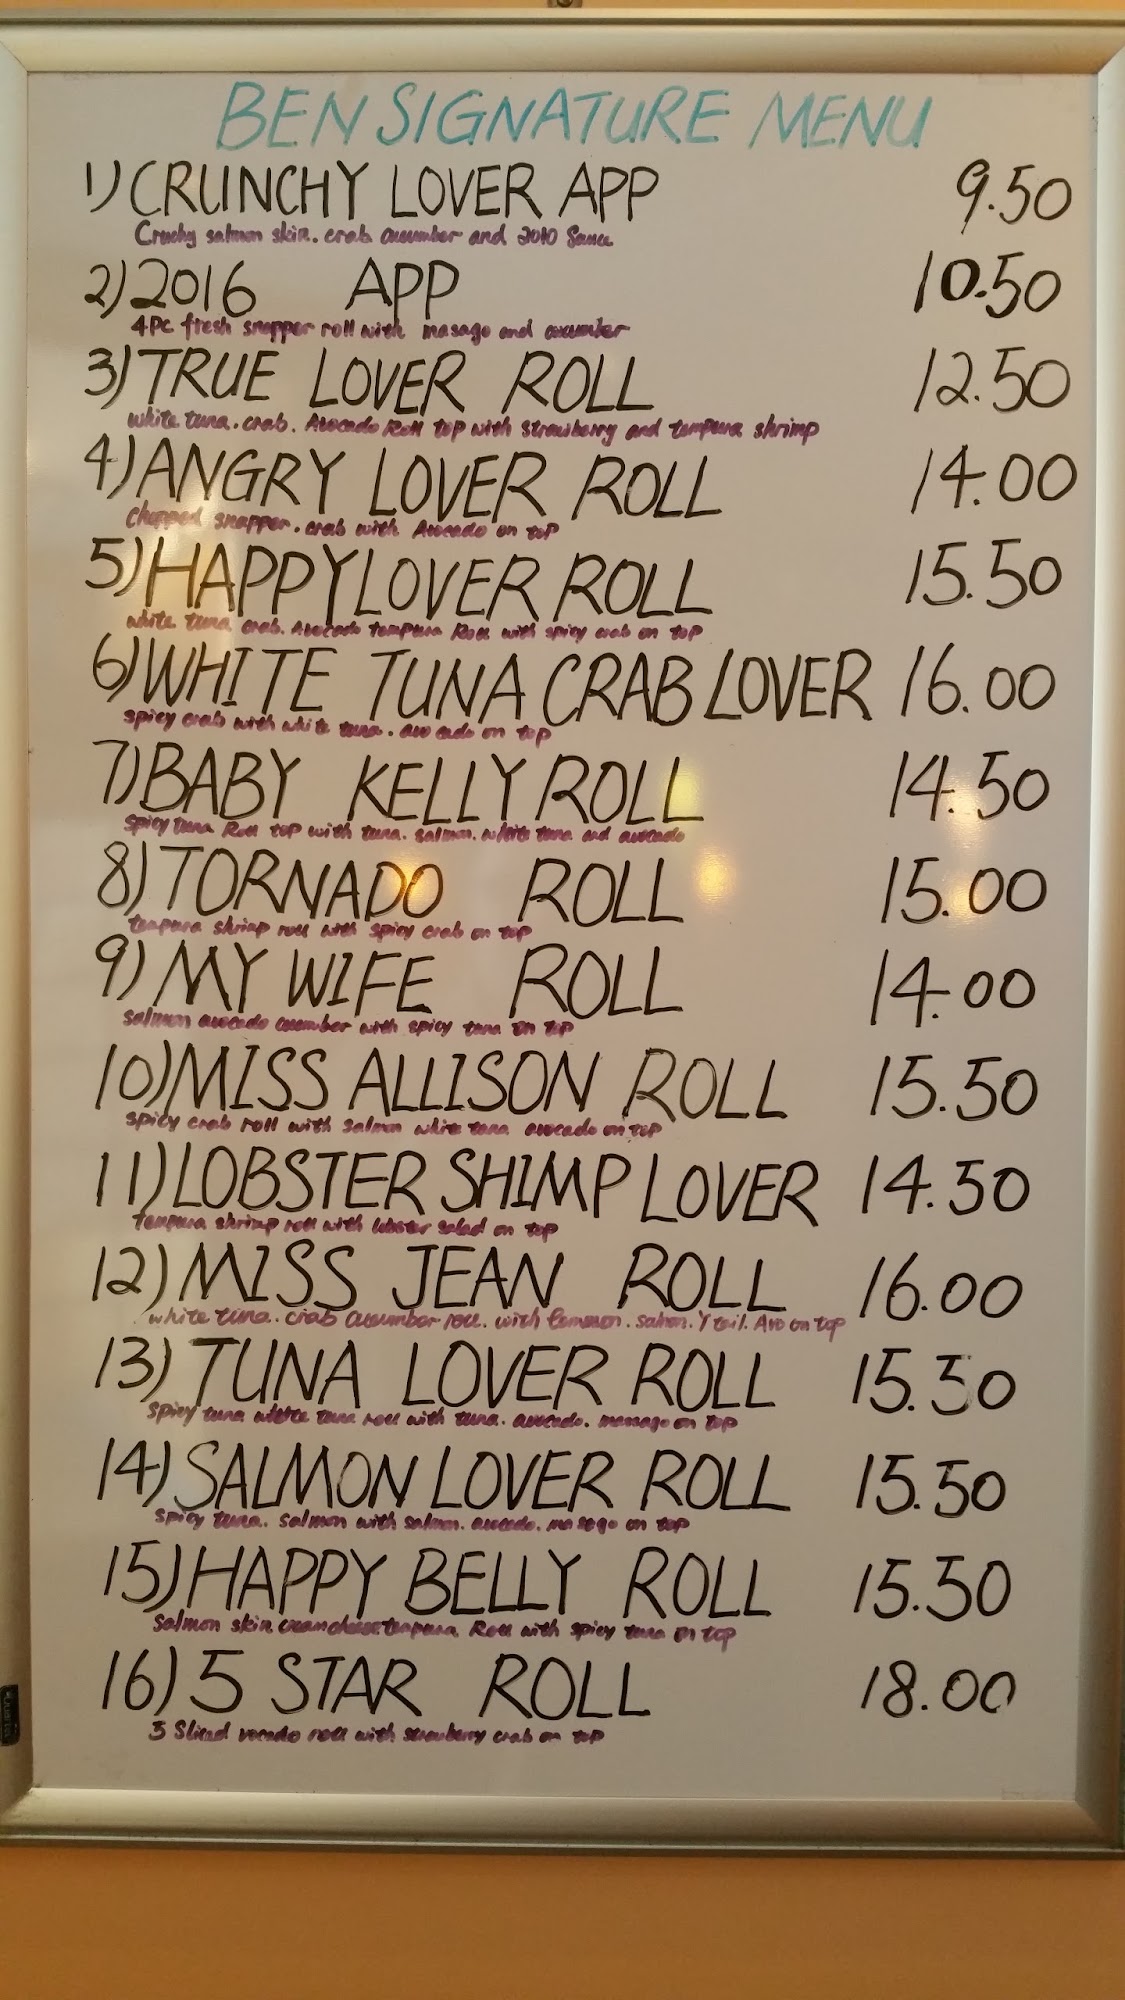 BEN SIGNATURE MENU
1) CRUNCHY LOVER APP 9.50
Cruchy salmon skin. crab cucumber and 2010 Sauce
2) 2016 APP 10.50
4PC fresh snapper roll with masago and cucumber
3) TRUE LOVER ROLL 12.50
white tuna. crab. Avocado Roll top with strawberry and tempura shrimp
4) ANGRY LOVER ROLL 14.00
chopped snapper. crab with Avocado on top
5) HAPPY LOVER ROLL 15.50
white tuna crab. Avocado tempura Roll with spicy crab on top
6) WHITE TUNA CRAB LOVER 16.00
spicy crab with white tuna. avocado on top
7) BABY KELLY ROLL 14.50
spicy tuna Roll top with tuna. salmon. white tuna and avocado
8) TORNADO ROLL 15.00
tempura shrimp roll with spicy crab on top
9) MY WIFE ROLL 14.00
salmon avocado cucumber with spicy tuna on top
10) MISS ALLISON ROLL 15.50
spicy crab roll with salmon white tuna avocado on top
11) LOBSTER SHIMP LOVER 14.50
tempura shrimp roll with lobster salad on top
12) MISS JEAN ROLL 16.00
white tuna. crab cucumber roll. with salmon. Y tail. Avo on top
13) TUNA LOVER ROLL 15.50
spicy tuna white tuna roll with tuna. avocado. massago on top
14) SALMON LOVER ROLL 15.50
spicy tuna. salmon with salmon. avocado. masago on top
15) HAPPY BELLY ROLL 15.50
salmon skin cream cheese tempura Roll with spicy tuna on top
16) 5 STAR ROLL 18.00
5 Sliced vocado roll with strawberry crab on top